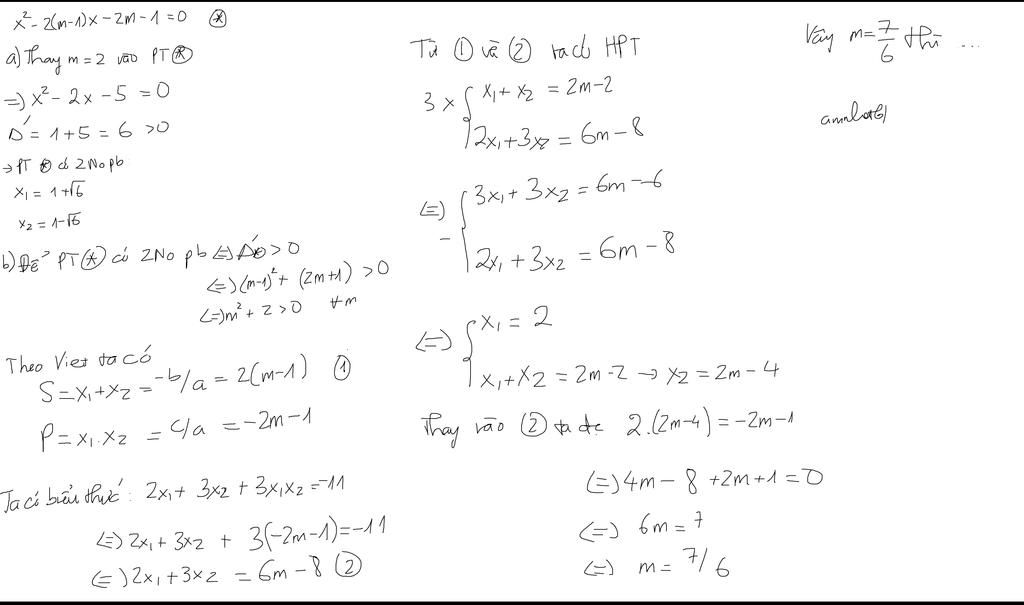 x² - 2(m-1)x - 2m - 1 = 0 (*)
a) Thay m = 2 vào PT (*)
=) x² - 2x - 5 = 0
Δ' = 1 + 5 = 6 > 0
→ PT (*) có 2 No pb:
x₁ = 1 + √6
x₂ = 1 - √6
b) Để PT (*) có 2No pb (=) Δ' > 0
(=) (m-1)² + (2m+1) > 0
(=) m² + 2 > 0 ∀m
Theo Viet ta có
S = x₁ + x₂ = -b/a = 2(m-1) (1)
P = x₁.x₂ = c/a = -2m - 1
Ta có biểu thức: 2x₁ + 3x₂ + 3x₁x₂ = -11
(=) 2x₁ + 3x₂ + 3(-2m-1) = -11
(=) 2x₁ + 3x₂ = 6m - 8 (2)
Từ (1) và (2) ta có HPT
3 x { x₁ + x₂ = 2m - 2
2x₁ + 3x₂ = 6m - 8
(=) { 3x₁ + 3x₂ = 6m - 6
- 2x₁ + 3x₂ = 6m - 8
(=) { x₁ = 2
x₁ + x₂ = 2m - 2 → x₂ = 2m - 4
Thay vào (2) ta đc 2.(2m-4) = -2m-1
(=) 4m - 8 + 2m + 1 = 0
(=) 6m = 7
(=) m = 7/6
Vậy m = 7/6 thì ...